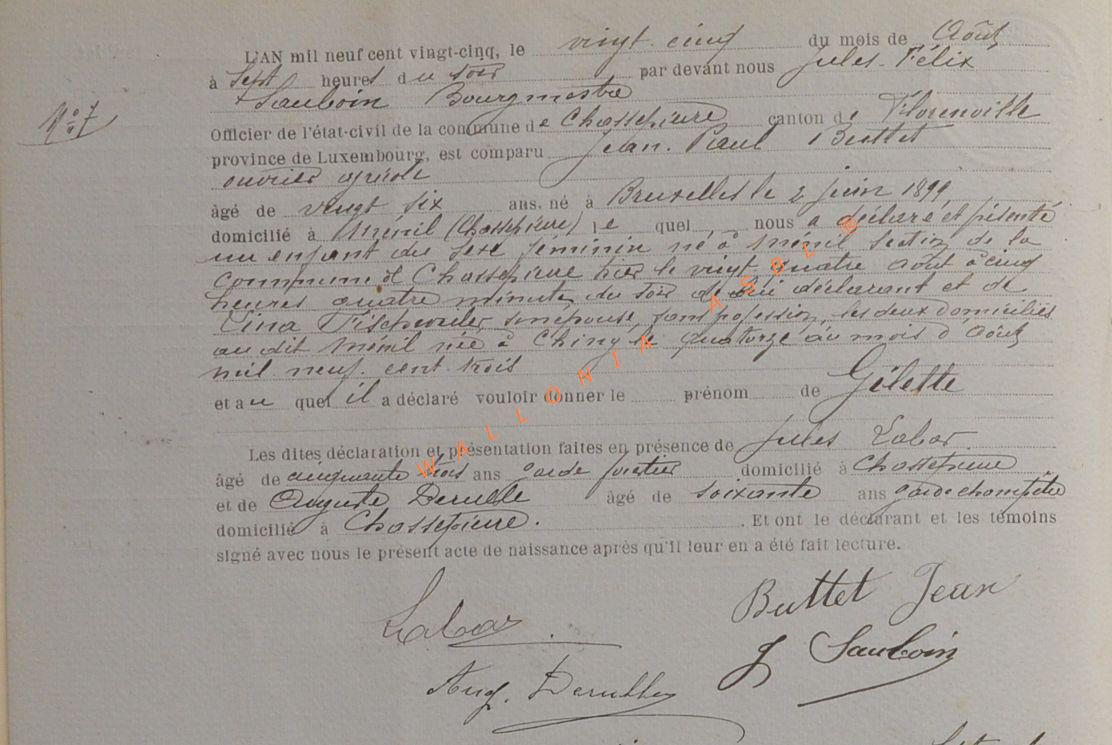 L'AN mil neuf cent vingt-cinq, le vingt-cinq du mois de Août
à sept heures du soir par devant nous Jules-Félix
Sauboin Bourgmestre
N° 7
Officier de l'état-civil de la commune de Chassepierre canton de Florenville
province de Luxembourg, est comparu Jean-Paul Buttet
ouvrier agricole
âgé de vingt six ans, né à Bruxelles le 2 juin 1899
domicilié à Ménil (Chassepierre) le quel nous a déclaré et présenté
un enfant du sexe féminin né à Ménil section de la
commune de Chassepierre hier le vingt quatre août à cinq
heures quatre minutes du soir de lui déclarant et de
Lina son épouse, sans profession, les deux domiciliés
au dit Ménil née à Chiny le quatorze du mois d'Août
mil neuf cent trois
et au quel il a déclaré vouloir donner le prénom de Gilette
Les dites déclaration et présentation faites en présence de Jules Labar
âgé de cinquante trois ans garde forestier domicilié à Chassepierre
et de Auguste âgé de soixante ans garde champêtre
domicilié à Chassepierre. Et ont le déclarant et les témoins
signé avec nous le présent acte de naissance après qu'il leur en a été fait lecture.
WALLONIA ASBL ©
Labar
Buttet Jean
J Sauboin
Aug.